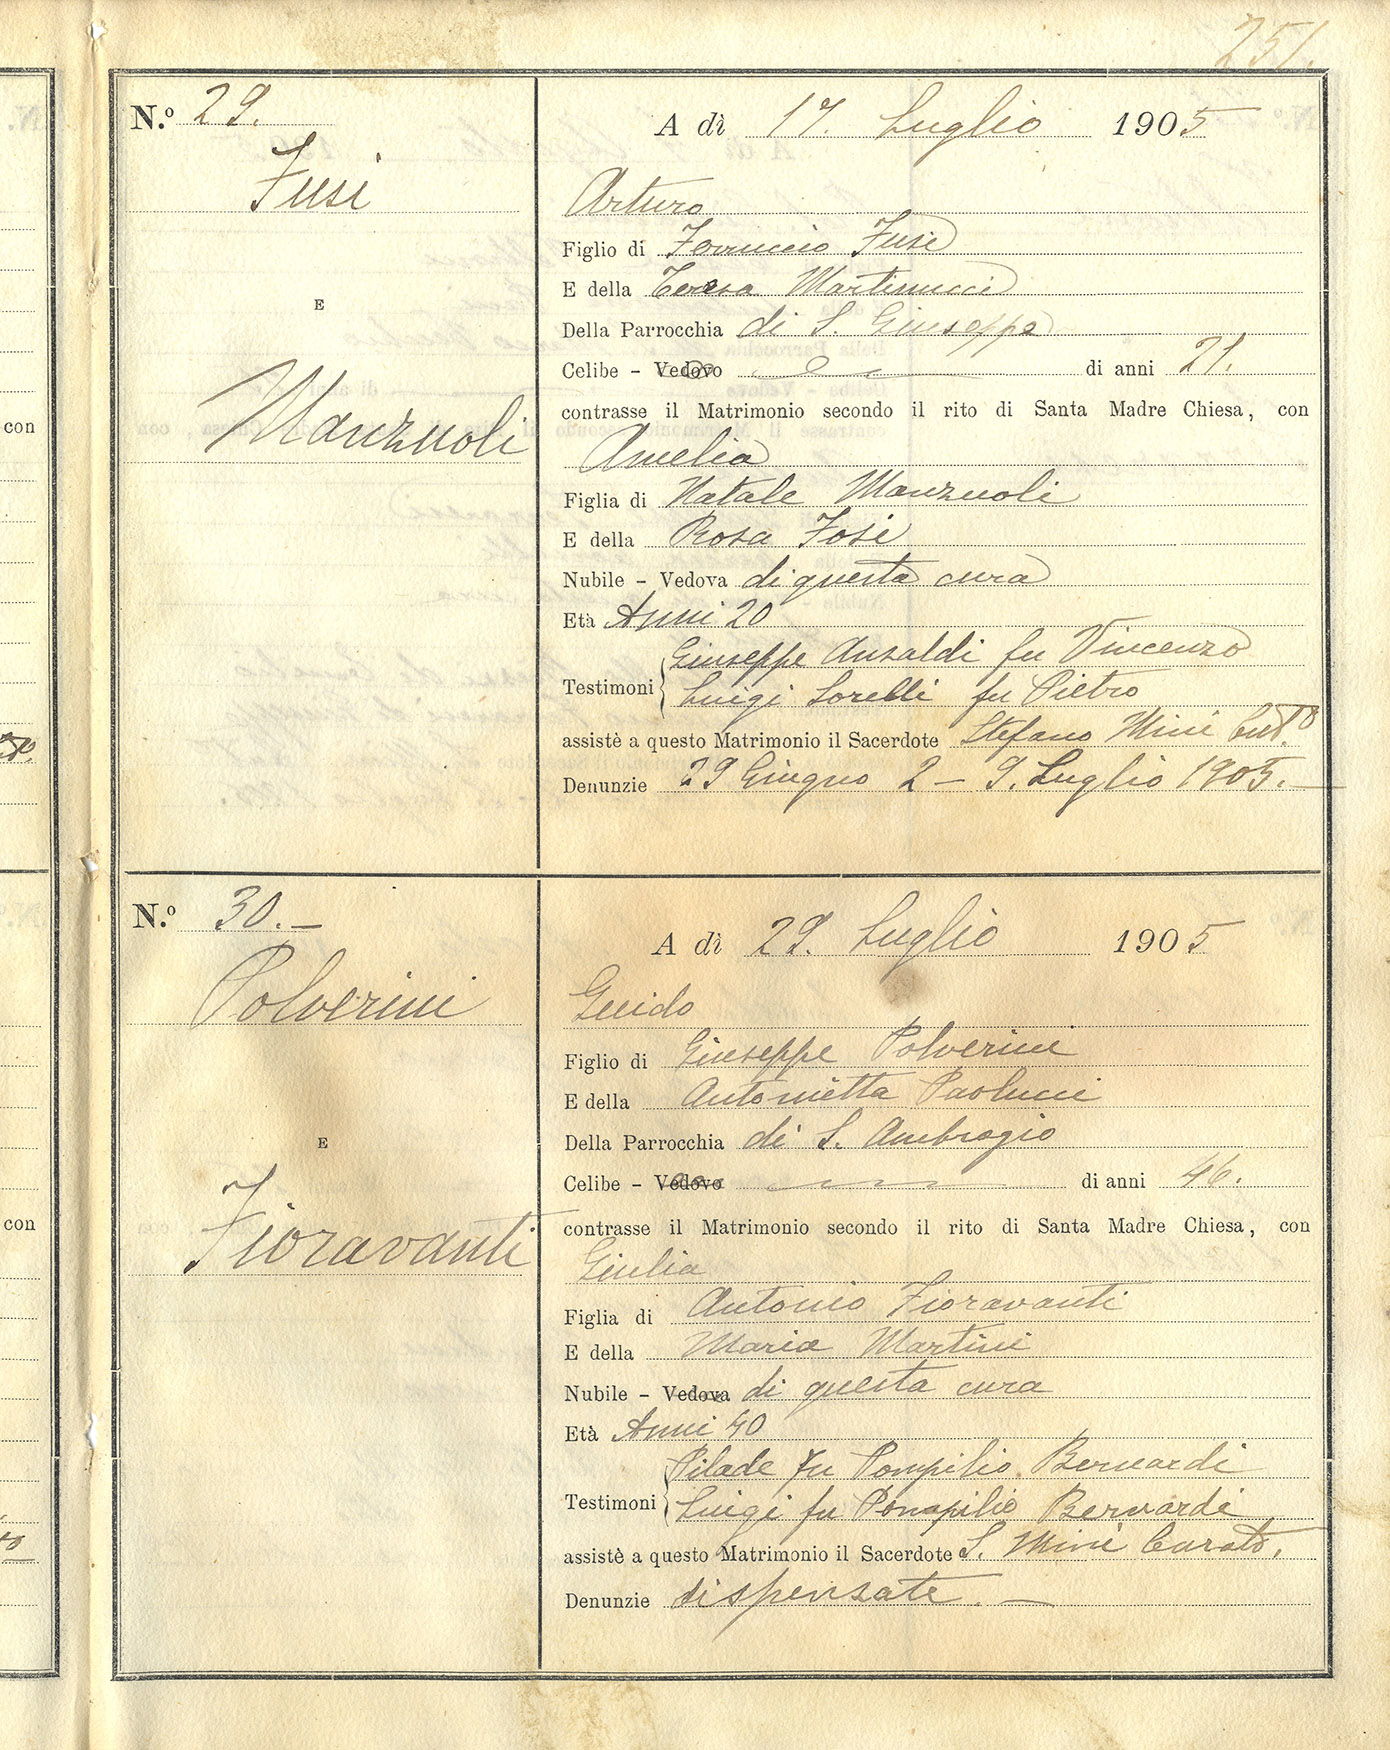 251.
N.º 29.
Fusi
E
Manzuoli
A dì 17. Luglio 1905
Arturo
Figlio di Ferruccio Fusi
E della Teresa Martinucci
Della Parrocchia di S. Giuseppe
Celibe - Vedovo di anni 21.
contrasse il Matrimonio secondo il rito di Santa Madre Chiesa, con
Amelia
Figlia di Natale Manzuoli
E della Rosa Fosi
Nubile - Vedova di questa cura
Età Anni 20
Giuseppe Ansaldi fu Vincenzo
Testimoni Luigi Lorelli fu Pietro
assistè a questo Matrimonio il Sacerdote Stefano Mini
Denunzie 29 Giugno 2 - 9. Luglio 1905. -
N.º 30. -
Polverini
E
Fioravanti
A dì 29. Luglio 1905
Guido
Figlio di Giuseppe Polverini
E della Antonietta Paolucci
Della Parrocchia di S. Ambrogio
Celibe - Vedovo di anni 46.
contrasse il Matrimonio secondo il rito di Santa Madre Chiesa, con
Giulia
Figlia di Antonio Fioravanti
E della Maria Martini
Nubile - Vedova di questa cura
Età Anni 40
Pilade fu Pompilio Bernardi
Testimoni Luigi fu Pompilio Bernardi
assistè a questo Matrimonio il Sacerdote S. Mini Curato.
Denunzie dispensate. -
con
con